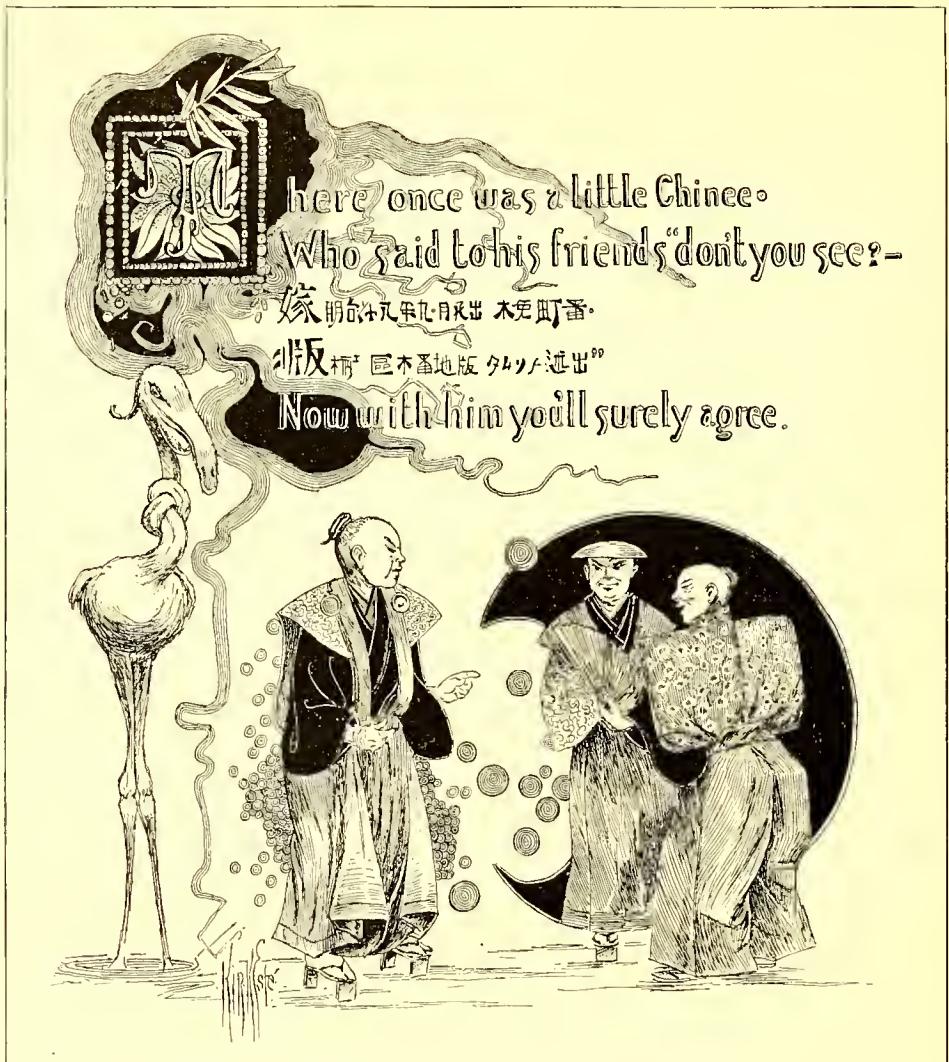 There once was a little Chinee.
Who said to his friends "don't you see?-
嫁 明治十九年九月出 木免町番.
版 區木番地版 出"
Now with him you'll surely agree.